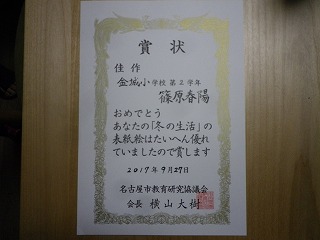 賞状
佳作
金城小学校 第2学年
篠原春陽
おめでとう
あなたの「冬の生活」の
表紙絵はたいへん優れ
ていましたので賞します
2017年9月27日
名古屋市教育研究協議会
会長 横山大樹